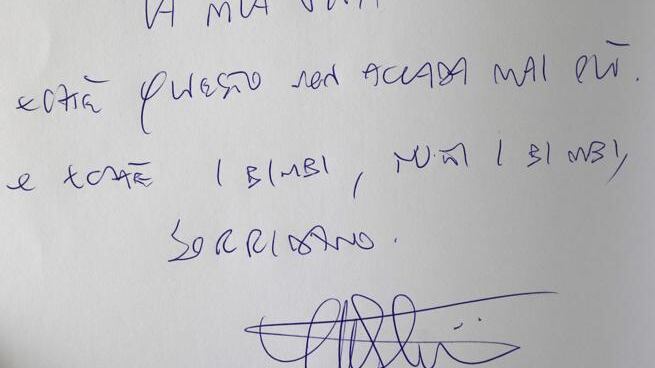 LA MIA
QUESTO NON ACCADA MAI PIÙ.
E I BIMBI, TUTTI I BIMBI,
SORRIDANO.